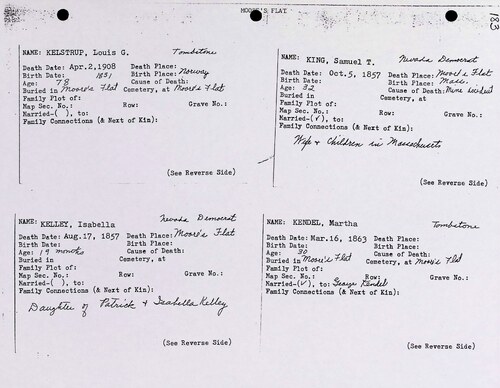 MOORE'S FLAT
183
NAME: KELSTRUP, Louis G. Tombstone
Death Date: Apr.2,1908 Death Place:
Birth Date: 1831 Birth Place: Norway
Age: 78 Cause of Death:
Buried in Moore's Flat Cemetery, at Moore's Flat
Family Plot of:
Map Sec. No.: Row: Grave No.:
Married-( ), to:
Family Connections (& Next of Kin):
(See Reverse Side)
NAME: KING, Samuel T. Nevada Democrat
Death Date: Oct.5, 1857 Death Place: Moore's Flat
Birth Date: Birth Place: Mass.
Age: 32 Cause of Death: Mine accident
Buried in Cemetery, at
Family Plot of:
Map Sec. No.: Row: Grave No.:
Married-(√), to:
Family Connections (& Next of Kin):
Wife & Children in Massachusetts
(See Reverse Side)
NAME: KELLEY, Isabella Nevada Democrat
Death Date: Aug.17, 1857 Death Place: Moore's Flat
Birth Date: Birth Place:
Age: 19 months Cause of Death:
Buried in Cemetery, at
Family Plot of:
Map Sec. No.: Row: Grave No.:
Married-( ), to:
Family Connections (& Next of Kin):
Daughter of Patrick & Isabella Kelley
(See Reverse Side)
NAME: KENDEL, Martha Tombstone
Death Date: Mar.16, 1863 Death Place:
Birth Date: Birth Place:
Age: 30 Cause of Death:
Buried in Moore's Flat Cemetery, at Moore's Flat
Family Plot of:
Map Sec. No.: Row: Grave No.:
Married-(√), to: George Kendel
Family Connections (& Next of Kin):
(See Reverse Side)